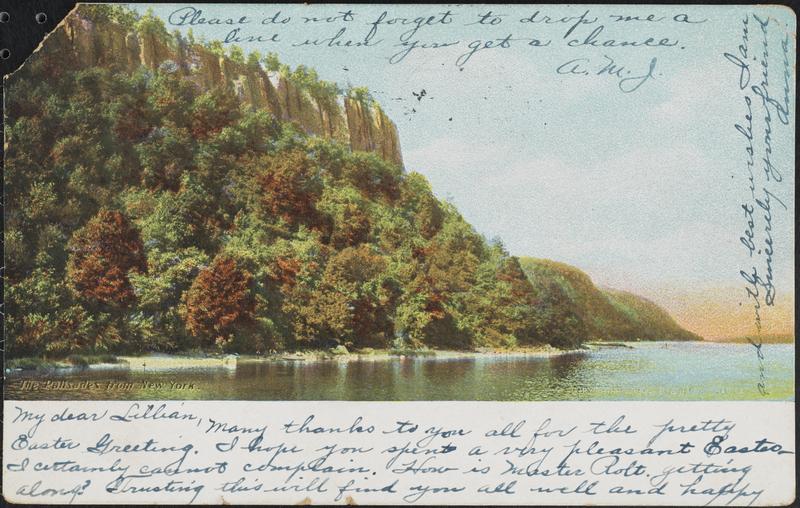 Please do not forget to drop me a
line when you get a chance.
A. M. J.
The Palisades from New York.
My dear Lillian,
Many thanks to you all for the pretty
Easter Greeting. I hope you spent a very pleasant Easter—
I certainly cannot complain. How is Master Robt. getting
along? Trusting this will find you all well and happy
and with best wishes I am
Sincerely your friend
Anna